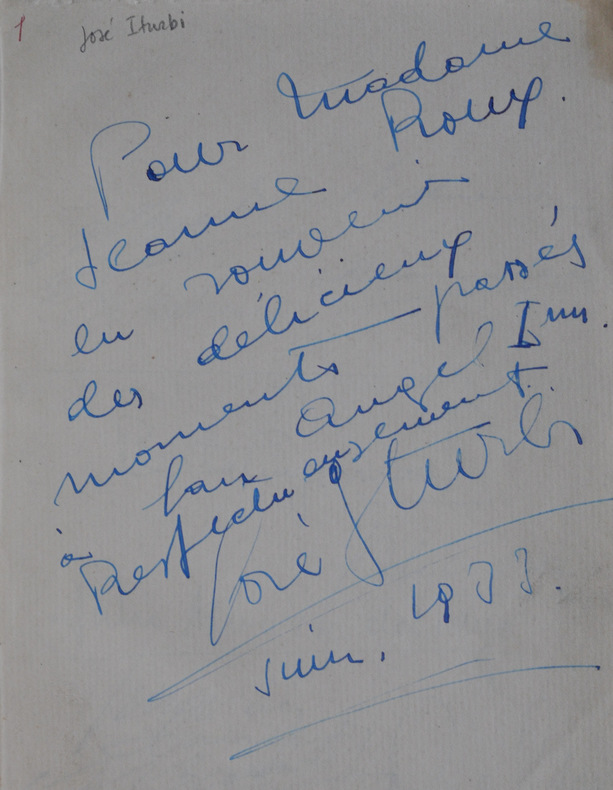 1 José Iturbi
Pour Madame
Jeanne Roux.
en souvenir
des délicieux
moments passés
à l'aux Angel Inn.
Respectueusement.
José Iturbi
Juin. 1933.